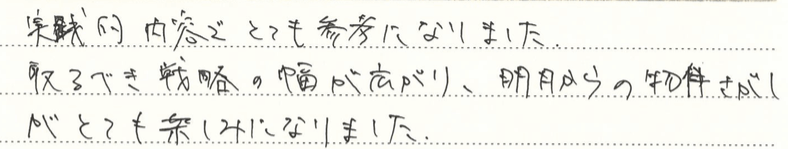 実践的内容でとても参考になりました.
取るべき戦略の幅が広がり、明日からの物件さがし
がとても楽しみになりました.